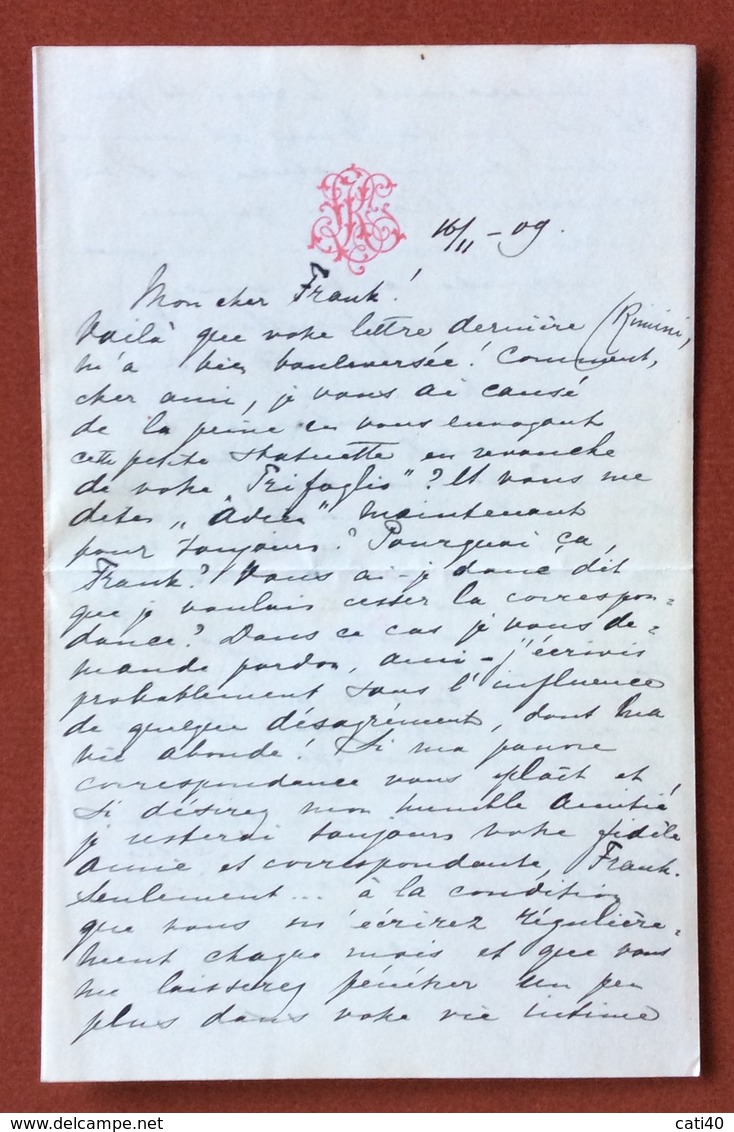 16/11 - 09.
Mon cher Frank!
Voilà que votre lettre dernière (Rimini,
m'a bien bouleversée! Comment,
cher ami, je vous ai causé
de la peine en vous envoyant
cette petite statuette en revanche
de votre „Trifoglio"? Et vous me
dites „Adieu" maintenant
pour toujours? Pourquoi ça,
Frank? Vous ai-je donc dit
que je voulais cesser la correspon-
dance? Dans ce cas je vous de-
mande pardon, ami - j'écrivis
probablement sous l'influence
de quelque désagrément, dont ma
vie abonde! Si ma pauvre
correspondance vous plaît et
si désirez mon humble amitié
je resterai toujours votre fidèle
amie et correspondante, Frank.
Seulement... à la condition
que vous m'écrirez régulière-
ment chaque mois et que vous
me laisserez pénétrer un peu
plus dans votre vie intime
cati40